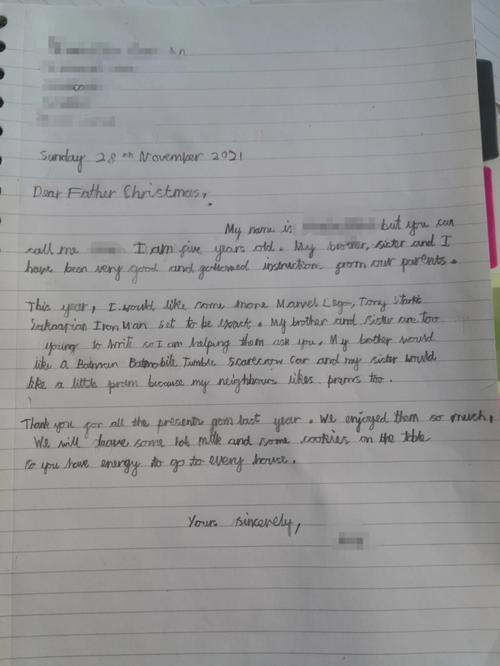 Sunday 28th November 2021
Dear Father Christmas,
My name is but you can
call me I am five years old. My brother, sister and I
have been very good and gollowed instruction from our parents.
This year, I would like some more Marvel Lego, Tony Starks
Sakaarian Iron Man set to be exact. My brother and sister are too
young to write so I am helping them ask you. My brother would
like a Batman Batmobile Tumbler Scarecrow car and my sister would
like a little pram because my neighbours likes prams too.
Thank you for all the presents from last year. We enjoyed them so much,
We will leave some hot milk and some cookies on the table
so you have energy to go to every house.
Yours sincerely,